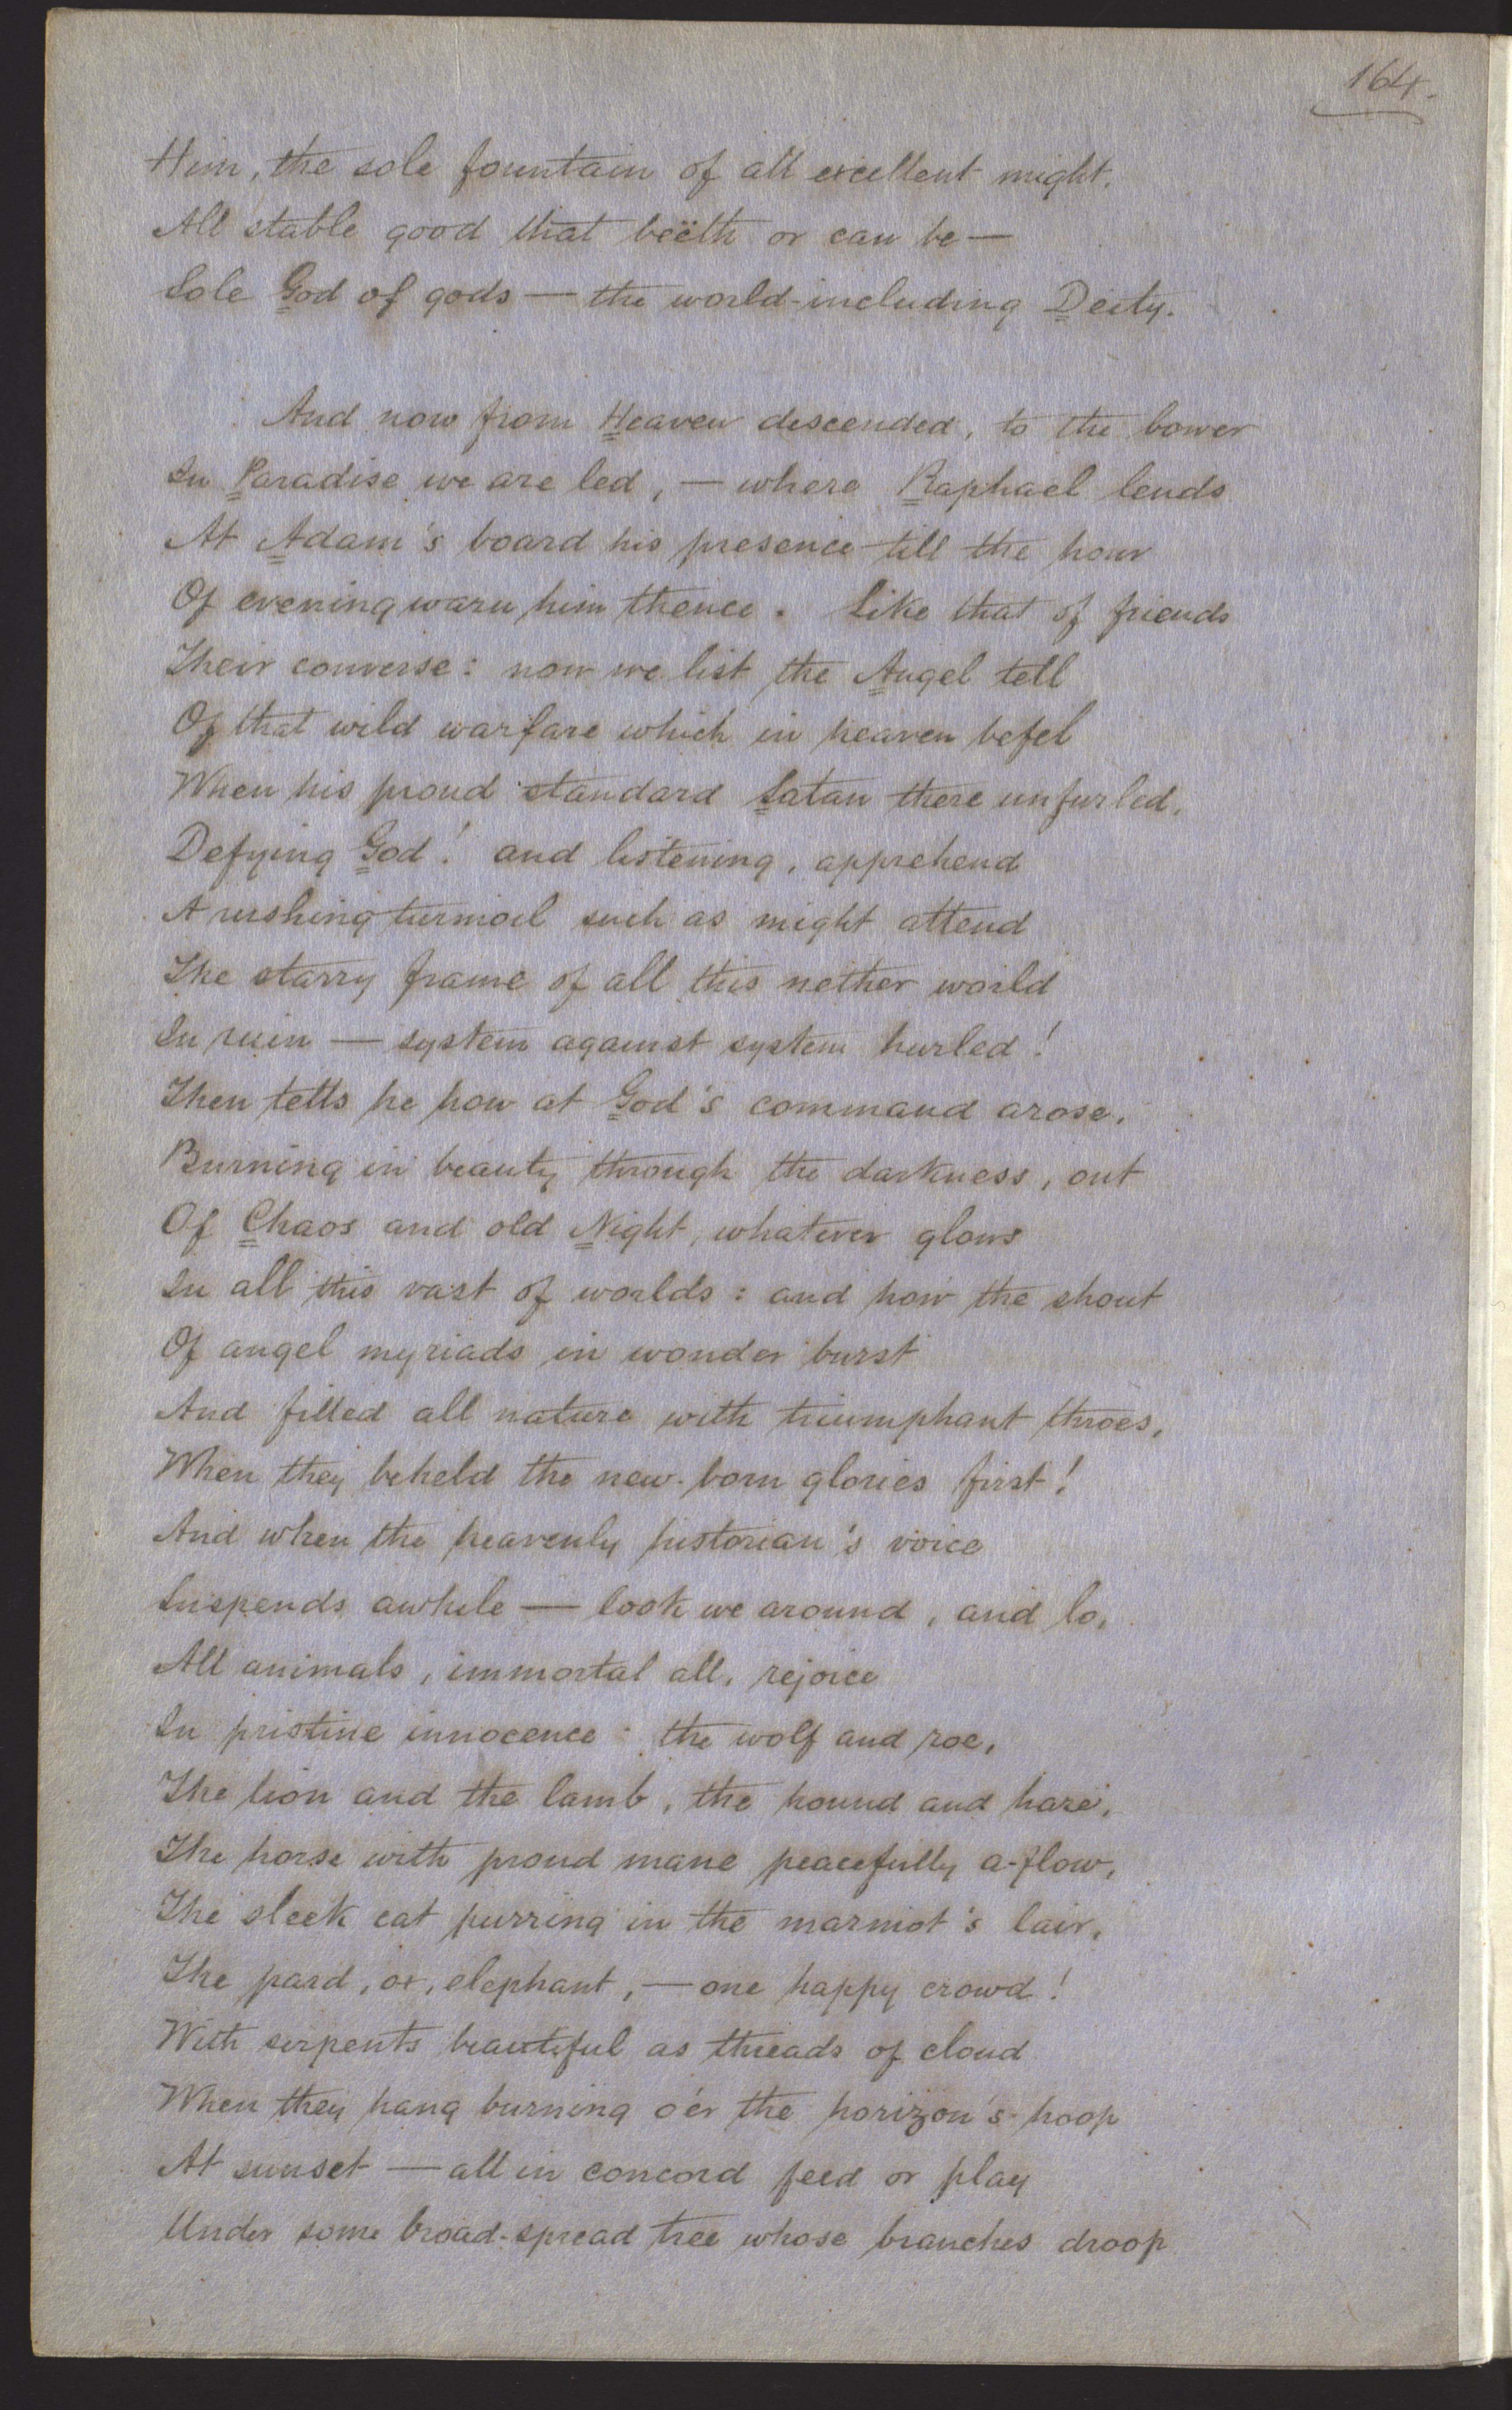 164.
Him, the sole fountain of all excellent might.
All stable good that beëth or can be—
Sole God of gods — the world-including Deity.
And now from Heaven descended, to the bower
In Paradise we are led, — where Raphael lends
At Adam's board his presence till the hour
Of evening warn him thence. Like that of friends
Their converse: now we list the Angel tell
Of that wild warfare which in heaven befel
When his proud standard Satan there unfurled,
Defying God! and listening, apprehend
A rushing turmoil such as might attend
The starry frame of all this nether world
In ruin — system against system hurled!
Then tells he how at God's command arose,
Burning in beauty through the darkness, out
Of Chaos and old Night, whatever glows
In all this vast of worlds: and how the shout
Of angel myriads in wonder burst
And filled all nature with triumphant throes,
When they beheld the new-born glories first!
And when the heavenly historian's voice
Suspends awhile — look we around, and lo,
All animals, immortal all, rejoice
In pristine innocence: the wolf and roe,
The lion and the lamb, the hound and hare,
The horse with proud mane peacefully a-flow,
The sleek cat purring in the marmot's lair,
The pard, ox, elephant, — one happy crowd!
With serpents beautiful as threads of cloud
When they hang burning o'er the horizon's hoop
At sunset — all in concord feed or play
Under some broad-spread tree whose branches droop